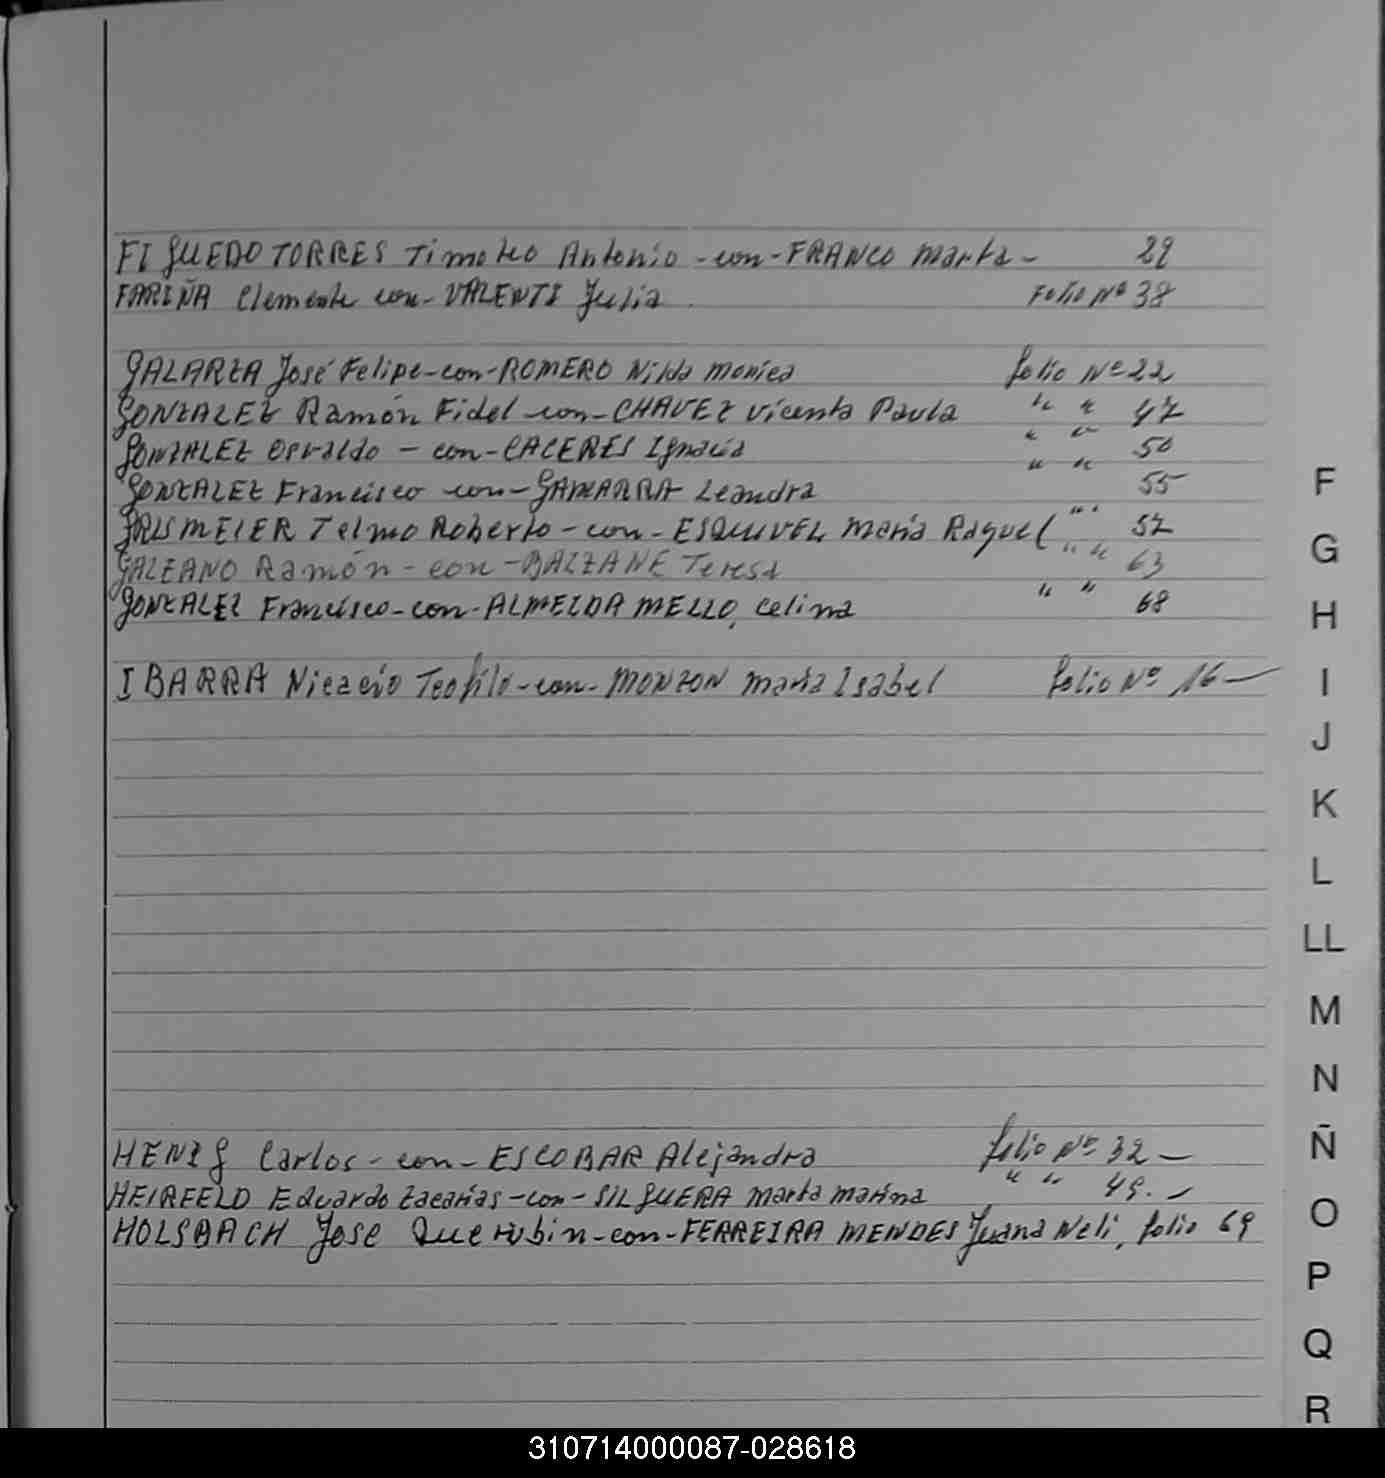 FIGUEDO TORRES Timoteo Antonio - con - FRANCO Marta - 29
FARIÑA Clemente con - VALENTI Julia Folio Nº 38
GALARZA José Felipe - con - ROMERO Nilda Monica folio Nº 22
GONZALEZ Ramón Fidel - con - CHAVEZ Vicenta Paula " " 47
GONZALEZ Osvaldo - con - CACERES Ignacia " " 50
GONZALEZ Francisco con - GAMARRA Leandra " " 55
GRISMEIER Telmo Roberto - con - ESQUIVEL Maria Raquel " " 57
GALEANO Ramón - con - BALZANE Teresa " " 63
GONZALEZ Francisco - con - ALMEIDA MELLO, Celina " " 68
IBARRA Nicacio Teofilo - con - MONZON Maria Isabel folio Nº 16 -
HENIG Carlos - con - ESCOBAR Alejandra folio Nº 32 -
HEIRFELD Eduardo Zacarias - con - SILGUERA Marta Marina " " 49. -
HOLSBACH Jose Querubin - con - FERREIRA MENDES Juana Neli, folio 69
F
G
H
I
J
K
L
LL
M
N
Ñ
O
P
Q
R
310714000087-028618